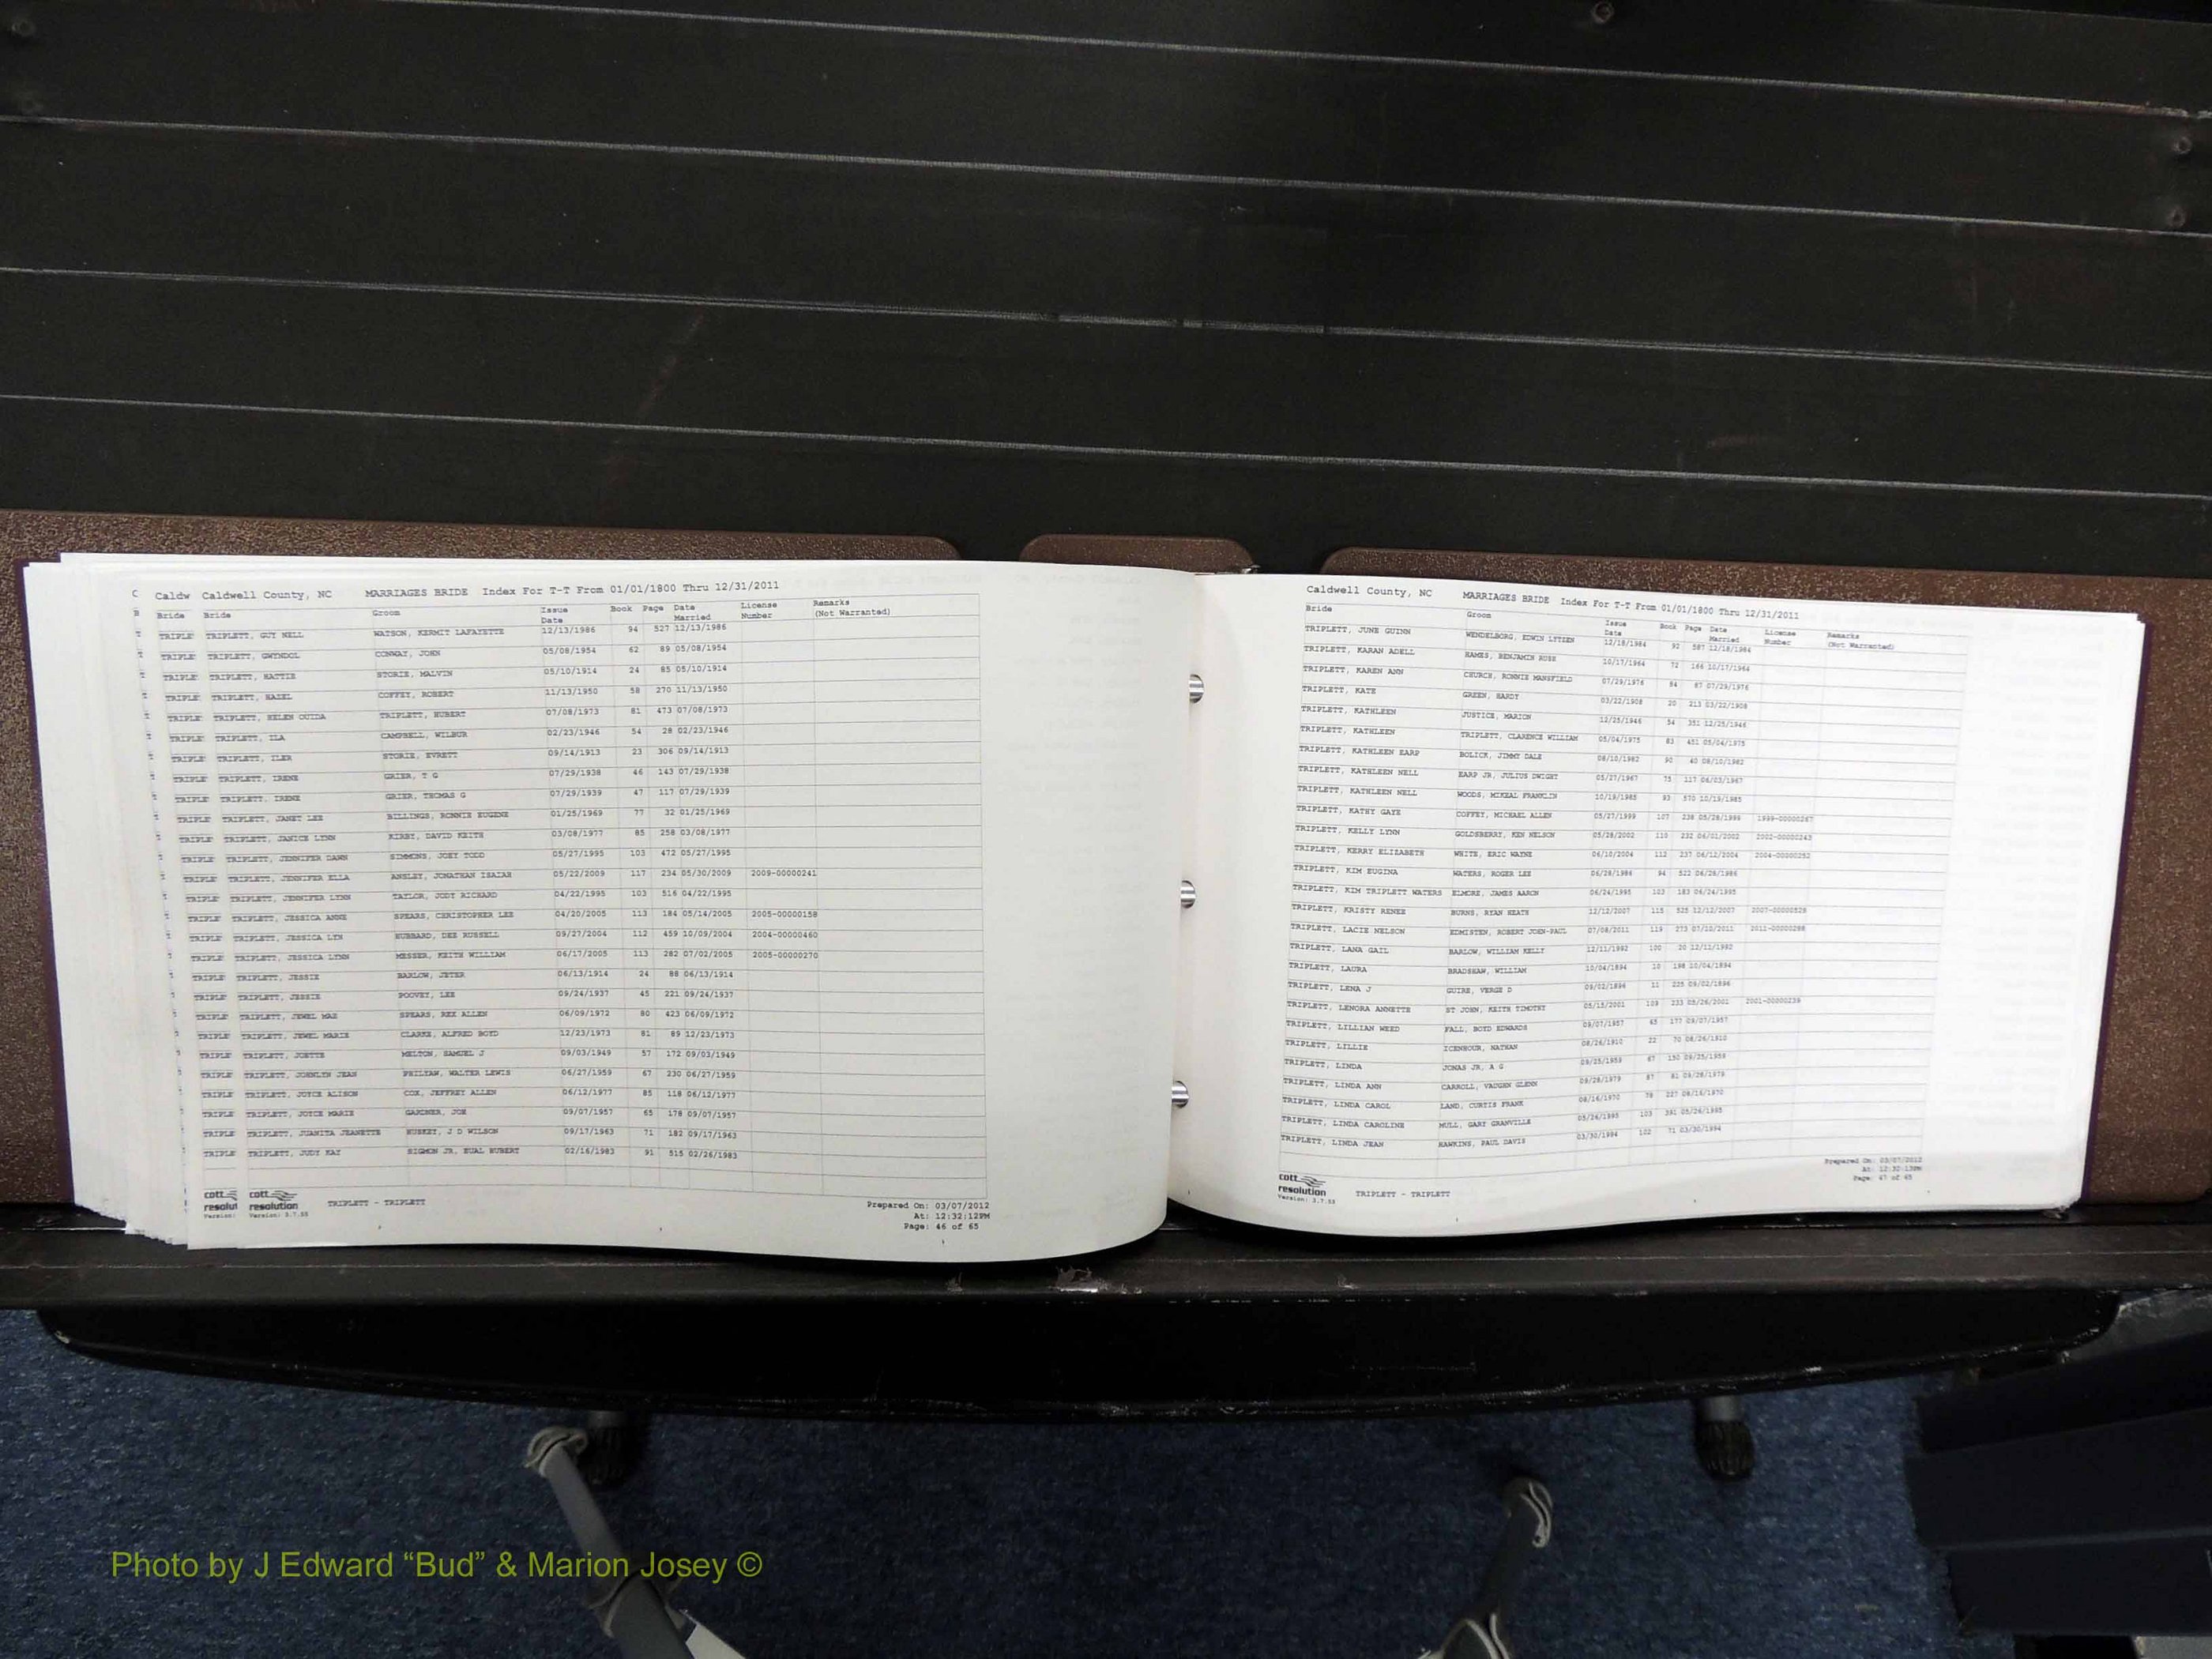 Caldwell County, NC MARRIAGES BRIDE Index For T-T From 01/01/1800 Thru 12/31/2011
Bride Groom Issue Date Book Page Date Married License Number Remarks (Not Warranted)
TRIPLETT, GUY NELL WATSON, KERMIT LAFAYETTE 12/13/1986 94 527 12/13/1986
TRIPLETT, GWYNDOL CONWAY, JOHN 05/08/1954 62 89 05/08/1954
TRIPLETT, HATTIE STORIE, MALVIN 05/10/1914 24 85 05/10/1914
TRIPLETT, HAZEL COFFEY, ROBERT 11/13/1950 58 270 11/13/1950
TRIPLETT, HELEN OUIDA TRIPLETT, HUBERT 07/08/1973 81 473 07/08/1973
TRIPLETT, ILA CAMPBELL, WILBUR 02/23/1946 54 28 02/23/1946
TRIPLETT, ILER STORIE, EVRETT 09/14/1913 23 306 09/14/1913
TRIPLETT, IRENE GRIER, T G 07/29/1938 46 143 07/29/1938
TRIPLETT, IRENE GRIER, THOMAS G 07/29/1939 47 117 07/29/1939
TRIPLETT, JANET LEE BILLINGS, RONNIE EUGENE 01/25/1969 77 32 01/25/1969
TRIPLETT, JANICE LYNN KIRBY, DAVID KEITH 03/08/1977 85 258 03/08/1977
TRIPLETT, JENNIFER DAWN SIMMONS, JOEY TODD 05/27/1995 103 472 05/27/1995
TRIPLETT, JENNIFER ELLA ANSLEY, JONATHAN ISAIAH 05/22/2009 117 234 05/30/2009 2009-00000241
TRIPLETT, JENNIFER LYNN TAYLOR, JODY RICHARD 04/22/1995 103 516 04/22/1995
TRIPLETT, JESSICA ANNE SPEARS, CHRISTOPHER LEE 04/20/2005 113 184 05/14/2005 2005-00000158
TRIPLETT, JESSICA LYN HUBBARD, DEE RUSSELL 09/27/2004 112 459 10/09/2004 2004-00000460
TRIPLETT, JESSICA LYNN MESSER, KEITH WILLIAM 06/17/2005 113 282 07/02/2005 2005-00000270
TRIPLETT, JESSIE BARLOW, JETER 06/13/1914 24 88 06/13/1914
TRIPLETT, JESSIE POOVEY, LEE 09/24/1937 45 221 09/24/1937
TRIPLETT, JEWEL MAE SPEARS, REX ALLEN 06/09/1972 80 423 06/09/1972
TRIPLETT, JEWEL MARIE CLARKE, ALFRED BOYD 12/23/1973 81 89 12/23/1973
TRIPLETT, JOETTE MELTON, SAMUEL J 09/03/1949 57 172 09/03/1949
TRIPLETT, JOHNLYN JEAN PHILYAW, WALTER LEWIS 06/27/1959 67 230 06/27/1959
TRIPLETT, JOYCE ALISON COX, JEFFREY ALLEN 06/12/1977 85 118 06/12/1977
TRIPLETT, JOYCE MARIE GARDNER, JOE 09/07/1957 65 178 09/07/1957
TRIPLETT, JUANITA JEANETTE HUSKEY, J D WILSON 09/17/1963 71 182 09/17/1963
TRIPLETT, JUDY KAY SIGMON JR, EUAL HUBERT 02/16/1983 91 515 02/26/1983
cott resolution
Version: 3.7.55
TRIPLETT - TRIPLETT
Prepared On: 03/07/2012
At: 12:32:12PM
Page: 46 of 65
Caldwell County, NC MARRIAGES BRIDE Index For T-T From 01/01/1800 Thru 12/31/2011
Bride Groom Issue Date Book Page Date Married License Number Remarks (Not Warranted)
TRIPLETT, JUNE GUINN WENDELBORG, EDWIN LYTZEN 12/18/1984 92 587 12/18/1984
TRIPLETT, KARAN ADELL HAMES, BENJAMIN RUSH 10/17/1964 72 166 10/17/1964
TRIPLETT, KAREN ANN CHURCH, RONNIE MANSFIELD 07/29/1976 84 87 07/29/1976
TRIPLETT, KATE GREEN, HARDY 03/22/1908 20 213 03/22/1908
TRIPLETT, KATHLEEN JUSTICE, MARION 12/25/1946 54 351 12/25/1946
TRIPLETT, KATHLEEN TRIPLETT, CLARENCE WILLIAM 05/04/1975 83 451 05/04/1975
TRIPLETT, KATHLEEN EARP BOLICK, JIMMY DALE 08/10/1982 90 40 08/10/1982
TRIPLETT, KATHLEEN NELL EARP JR, JULIUS DWIGHT 05/27/1967 75 117 06/03/1967
TRIPLETT, KATHLEEN NELL WOODS, MIKEAL FRANKLIN 10/19/1985 93 570 10/19/1985
TRIPLETT, KATHY GAYE COFFEY, MICHAEL ALLEN 05/27/1999 107 238 05/28/1999 1999-00000267
TRIPLETT, KELLY LYNN GOLDSBERRY, KEN NELSON 05/28/2002 110 232 06/01/2002 2002-00000243
TRIPLETT, KERRY ELIZABETH WHITE, ERIC WAYNE 06/10/2004 112 237 06/12/2004 2004-00000252
TRIPLETT, KIM EUGINA WATERS, ROGER LEE 06/28/1986 94 522 06/28/1986
TRIPLETT, KIM TRIPLETT WATERS ELMORE, JAMES AARON 06/24/1995 103 183 06/24/1995
TRIPLETT, KRISTY RENEE BURNS, RYAN HEATH 12/12/2007 115 525 12/12/2007 2007-00000529
TRIPLETT, LACIE NELSON EDMISTEN, ROBERT JOHN-PAUL 07/08/2011 119 273 07/10/2011 2011-00000288
TRIPLETT, LANA GAIL BARLOW, WILLIAM KELLY 12/11/1992 100 20 12/11/1992
TRIPLETT, LAURA BRADSHAW, WILLIAM 10/04/1894 10 198 10/04/1894
TRIPLETT, LENA J GUIRE, VERGE D 09/02/1896 11 225 09/02/1896
TRIPLETT, LENORA ANNETTE ST JOHN, KEITH TIMOTHY 05/15/2001 109 233 05/26/2001 2001-00000239
TRIPLETT, LILLIAN WEED FALL, BOYD EDWARDS 09/07/1957 65 177 09/07/1957
TRIPLETT, LILLIE ICENHOUR, NATHAN 08/26/1910 22 70 08/26/1910
TRIPLETT, LINDA JONAS JR, A G 09/25/1959 67 150 09/25/1959
TRIPLETT, LINDA ANN CARROLL, VAUGHN GLENN 09/28/1979 87 81 09/28/1979
TRIPLETT, LINDA CAROL LAND, CURTIS FRANK 08/16/1970 78 227 08/16/1970
TRIPLETT, LINDA CAROLINE MULL, GARY GRANVILLE 05/26/1995 103 391 05/26/1995
TRIPLETT, LINDA JEAN HAWKINS, PAUL DAVIS 03/30/1994 102 71 03/30/1994
cott resolution
Version: 3.7.55
TRIPLETT - TRIPLETT
Prepared On: 03/07/2012
At: 12:32:13PM
Page: 47 of 65
Photo by J Edward “Bud” & Marion Josey ©